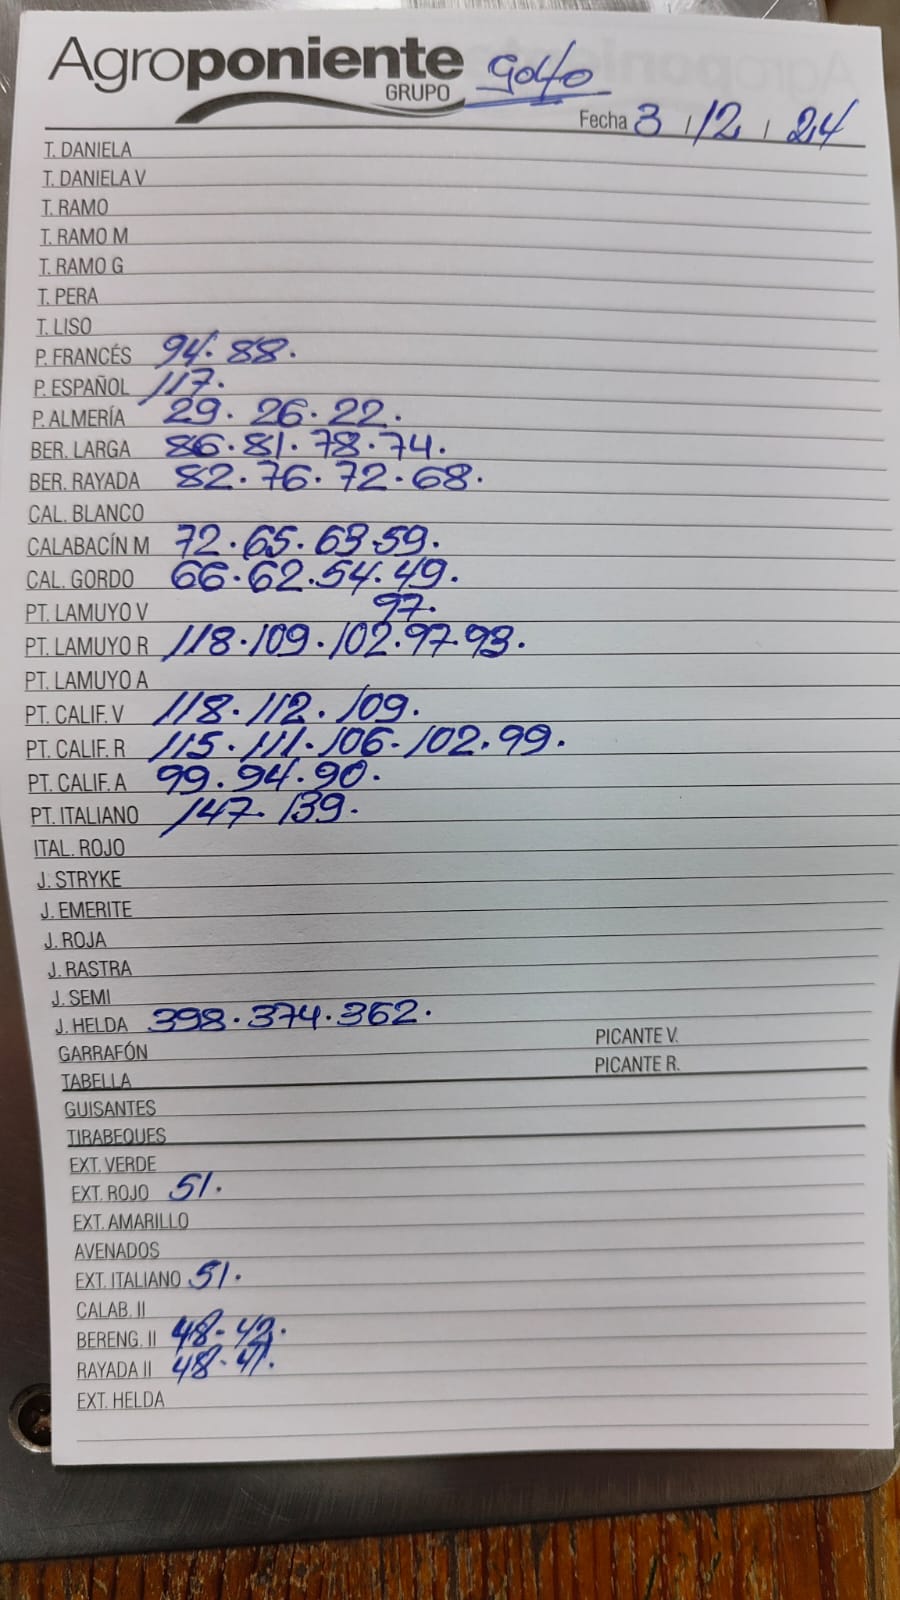 Agroponiente golfo
GRUPO
Fecha 3 / 12 / 24
T. DANIELA
T. DANIELA V
T. RAMO
T. RAMO M
T. RAMO G
T. PERA
T. LISO
P. FRANCÉS 94. 88.
P. ESPAÑOL 117.
P. ALMERÍA 29. 26. 22.
BER. LARGA 86. 81. 78. 74.
BER. RAYADA 82. 76. 72. 68.
CAL. BLANCO
CALABACÍN M 72. 65. 63. 59.
CAL. GORDO 66. 62. 54. 49.
PT. LAMUYO V 97.
PT. LAMUYO R 118. 109. 102. 97. 93.
PT. LAMUYO A
PT. CALIF. V 118. 112. 109.
PT. CALIF. R 115. 111. 106. 102. 99.
PT. CALIF. A 99. 94. 90.
PT. ITALIANO 147. 139.
ITAL. ROJO
J. STRYKE
J. EMERITE
J. ROJA
J. RASTRA
J. SEMI
J. HELDA 398. 374. 362.
GARRAFÓN PICANTE V.
TABELLA PICANTE R.
GUISANTES
TIRABEQUES
EXT. VERDE
EXT. ROJO 51.
EXT. AMARILLO
AVENADOS
EXT. ITALIANO 51.
CALAB. II
BERENG. II 48. 42.
RAYADA II 48. 41.
EXT. HELDA